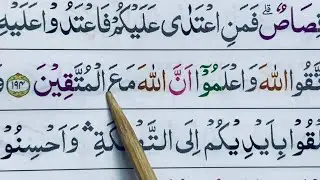 قِصَاصٌ ۚ فَمَنِ اعْتَدٰى عَلَيْكُمْ فَاعْتَدُوْا عَلَيْهِ
تَّقُوا اللّٰهَ وَاعْلَمُوْۤا اَنَّ اللّٰهَ مَعَ الْمُتَّقِيْنَ ۝۱۹۴
لْقُوْا بِاَيْدِيْكُمْ اِلَى التَّهْلُكَةِ ۛۚ وَاَحْسِنُوْ